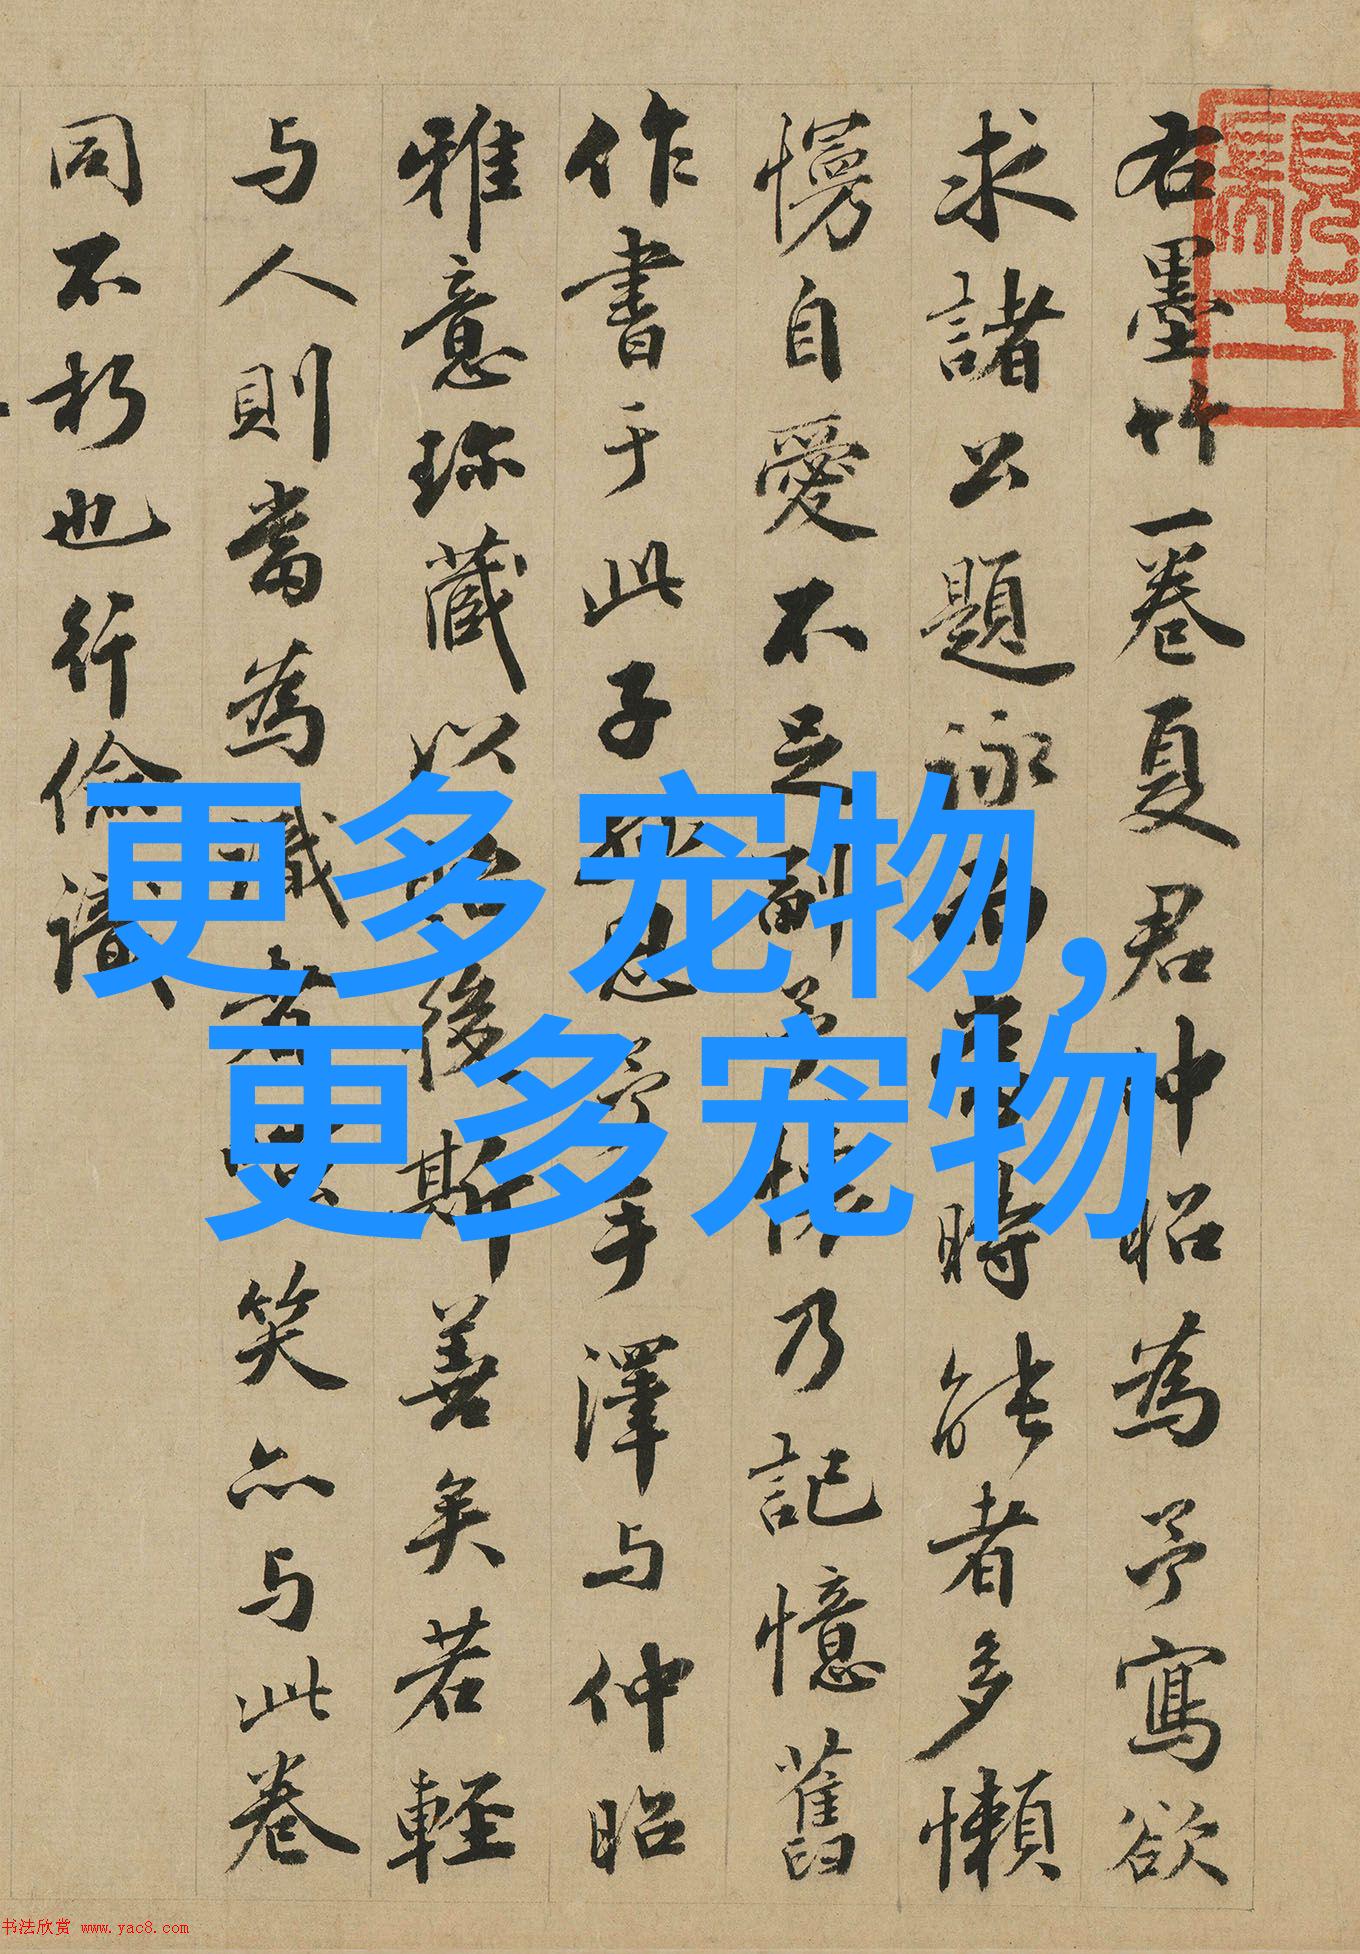 右墨竹一卷夏君仲昭為予寫欲
求諸公題詠
時能者多懶
慢自愛不足副予
乃記憶舊
作書于此子
予手澤与仲昭
雅意珍藏以
後斯善矣若輕
与人則當為識者
笑亦与此卷
同不朽也行儉識
更多宠物,
更多宠物
书法欣赏 www.yac8.com